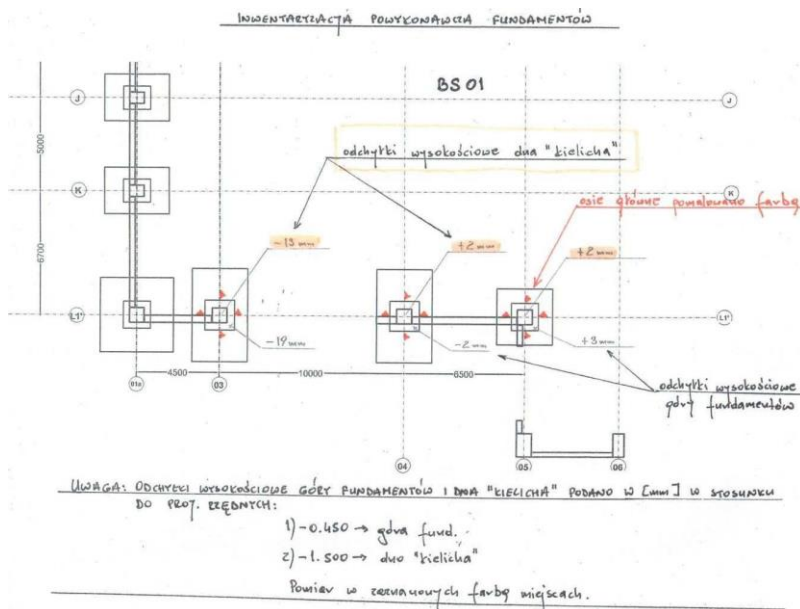 INWENTARYZACJA POWYKONAWCZA FUNDAMENTÓW
BS 01
J
J
5000
odchyłki wysokościowe dna "kielicha"
K
K
osie główne pomalowano farbą
6700
-13 mm
+2 mm
+2 mm
L1'
L1'
-19 mm
-2 mm
+3 mm
4500
10000
6500
01a
03
odchyłki wysokościowe
góry fundamentów
04
05
06
UWAGA: ODCHYŁKI WYSOKOŚCIOWE GÓRY FUNDAMENTÓW I DNA "KIELICHA" PODANO W [mm] W STOSUNKU
DO PROJ. RZĘDNYCH:
1) -0.450 → góra fund.
2) -1.500 → dno "kielicha"
Pomiar w zaznaczonych farbą miejscach.